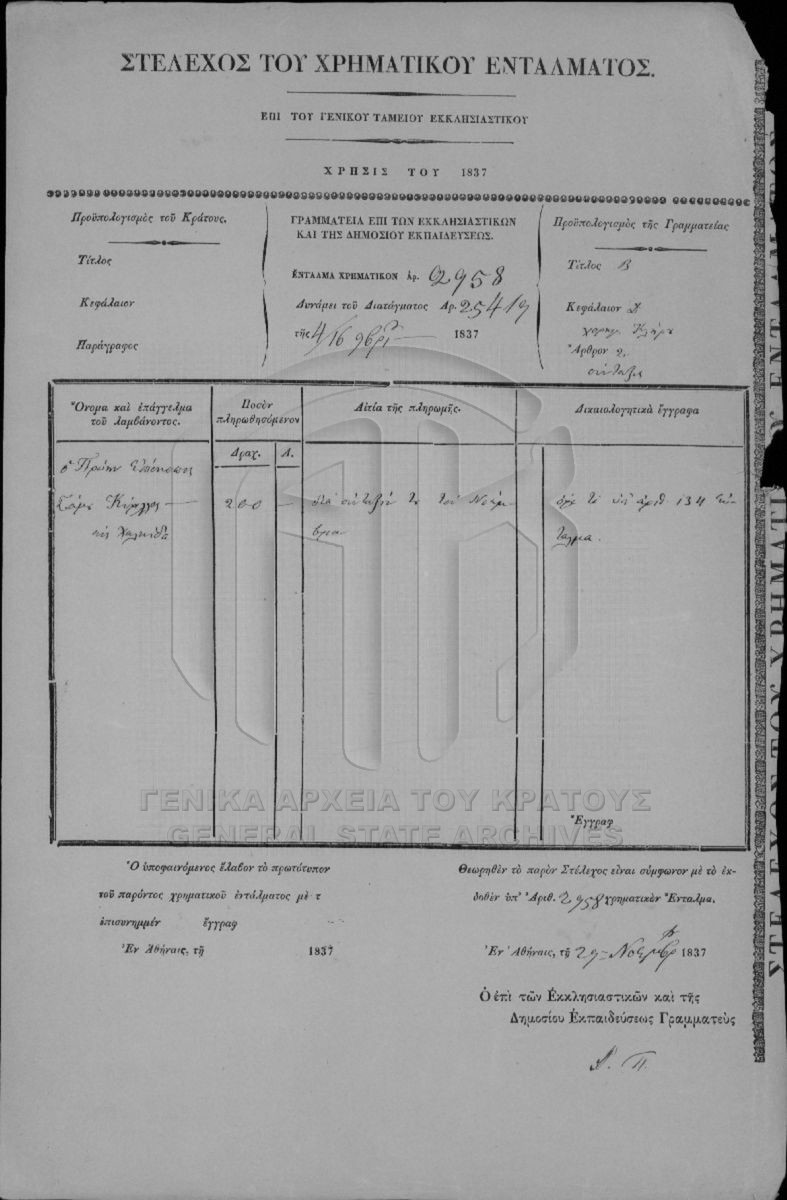 ΣΤΕΛΕΧΟΣ ΤΟΥ ΧΡΗΜΑΤΙΚΟΥ ΕΝΤΑΛΜΑΤΟΣ.
ΕΠΙ ΤΟΥ ΓΕΝΙΚΟΥ ΤΑΜΕΙΟΥ ΕΚΚΛΗΣΙΑΣΤΙΚΟΥ
ΧΡΗΣΙΣ ΤΟΥ 1837
Προϋπολογισμὸς τοῦ Κράτους.
Τίτλος
Κεφάλαιον
Παράγραφος
ΓΡΑΜΜΑΤΕΙΑ ΕΠΙ ΤΩΝ ΕΚΚΛΗΣΙΑΣΤΙΚΩΝ
ΚΑΙ ΤΗΣ ΔΗΜΟΣΙΟΥ ΕΚΠΑΙΔΕΥΣΕΩΣ.
ΕΝΤΑΛΜΑ ΧΡΗΜΑΤΙΚΟΝ Ἀρ. 2958
Δυνάμει τοῦ Διατάγματος Ἀρ. 25419
τῆς 4/16 9βρίου 1837
Προϋπολογισμὸς τῆς Γραμματείας
Τίτλος Β
Κεφάλαιον
Κλήρου
Ἄρθρον 2.
σύνταξις
Ὄνομα καὶ ἐπάγγελμα
τοῦ λαμβάνοντος.
Ποσὸν
πληρωθησόμενον
Δραχ. Λ.
Αἰτία τῆς πληρωμῆς.
Δικαιολογητικὰ ἔγγραφα
ὁ Πρώην Ἐπίσκοπος
Κύριλλος
εἰς Χαλκίδα
200
διὰ σύνταξίν του τοῦ Νοεμ
βρίου
ὅρα τὸ ὑπ' ἀριθ. 134 ἔν-
ταλμα.
Ἔγγραφ
Ὁ ὑποφαινόμενος ἔλαβον τὸ πρωτότυπον
τοῦ παρόντος χρηματικοῦ ἐντάλματος μὲ τ
ἐπισυνημμέν ἔγγραφ
Ἐν Ἀθήναις, τῇ 1837
Θεωρηθὲν τὸ παρὸν Στέλεχος εἶναι σύμφωνον μὲ τὸ ἐκ-
δοθὲν ὑπ' Ἀριθ. 2958 χρηματικὸν Ἔνταλμα.
Ἐν Ἀθήναις, τῇ 29 Νοεμβρ 1837
Ὁ ἐπὶ τῶν Ἐκκλησιαστικῶν καὶ τῆς
Δημοσίου Ἐκπαιδεύσεως Γραμματεὺς
Α. Π.
ΓΕΝΙΚΑ ΑΡΧΕΙΑ ΤΟΥ ΚΡΑΤΟΥΣ
GENERAL STATE ARCHIVES
ΣΤΕΛΕΧΟΣ ΤΟΥ ΧΡΗΜΑΤΙ ΕΝΤΑΛΜ